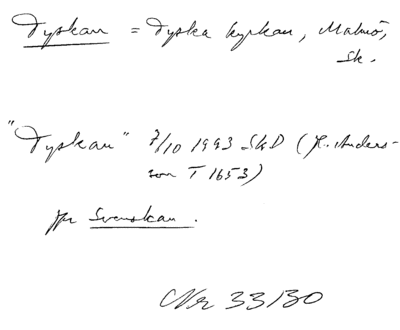 Tyskan = Tyska kyrkan, Malmö,
Sk.
"Tyskan" 7/10 1993 SkD (K. Anders-
son T 1653)
jfr Svenskan.
Nr 33130